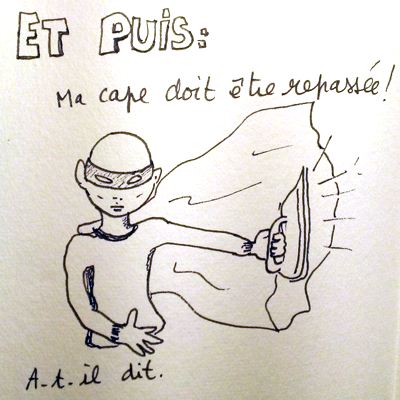 ET PUIS:
Ma cape doit être repassée!
A-t-il dit.